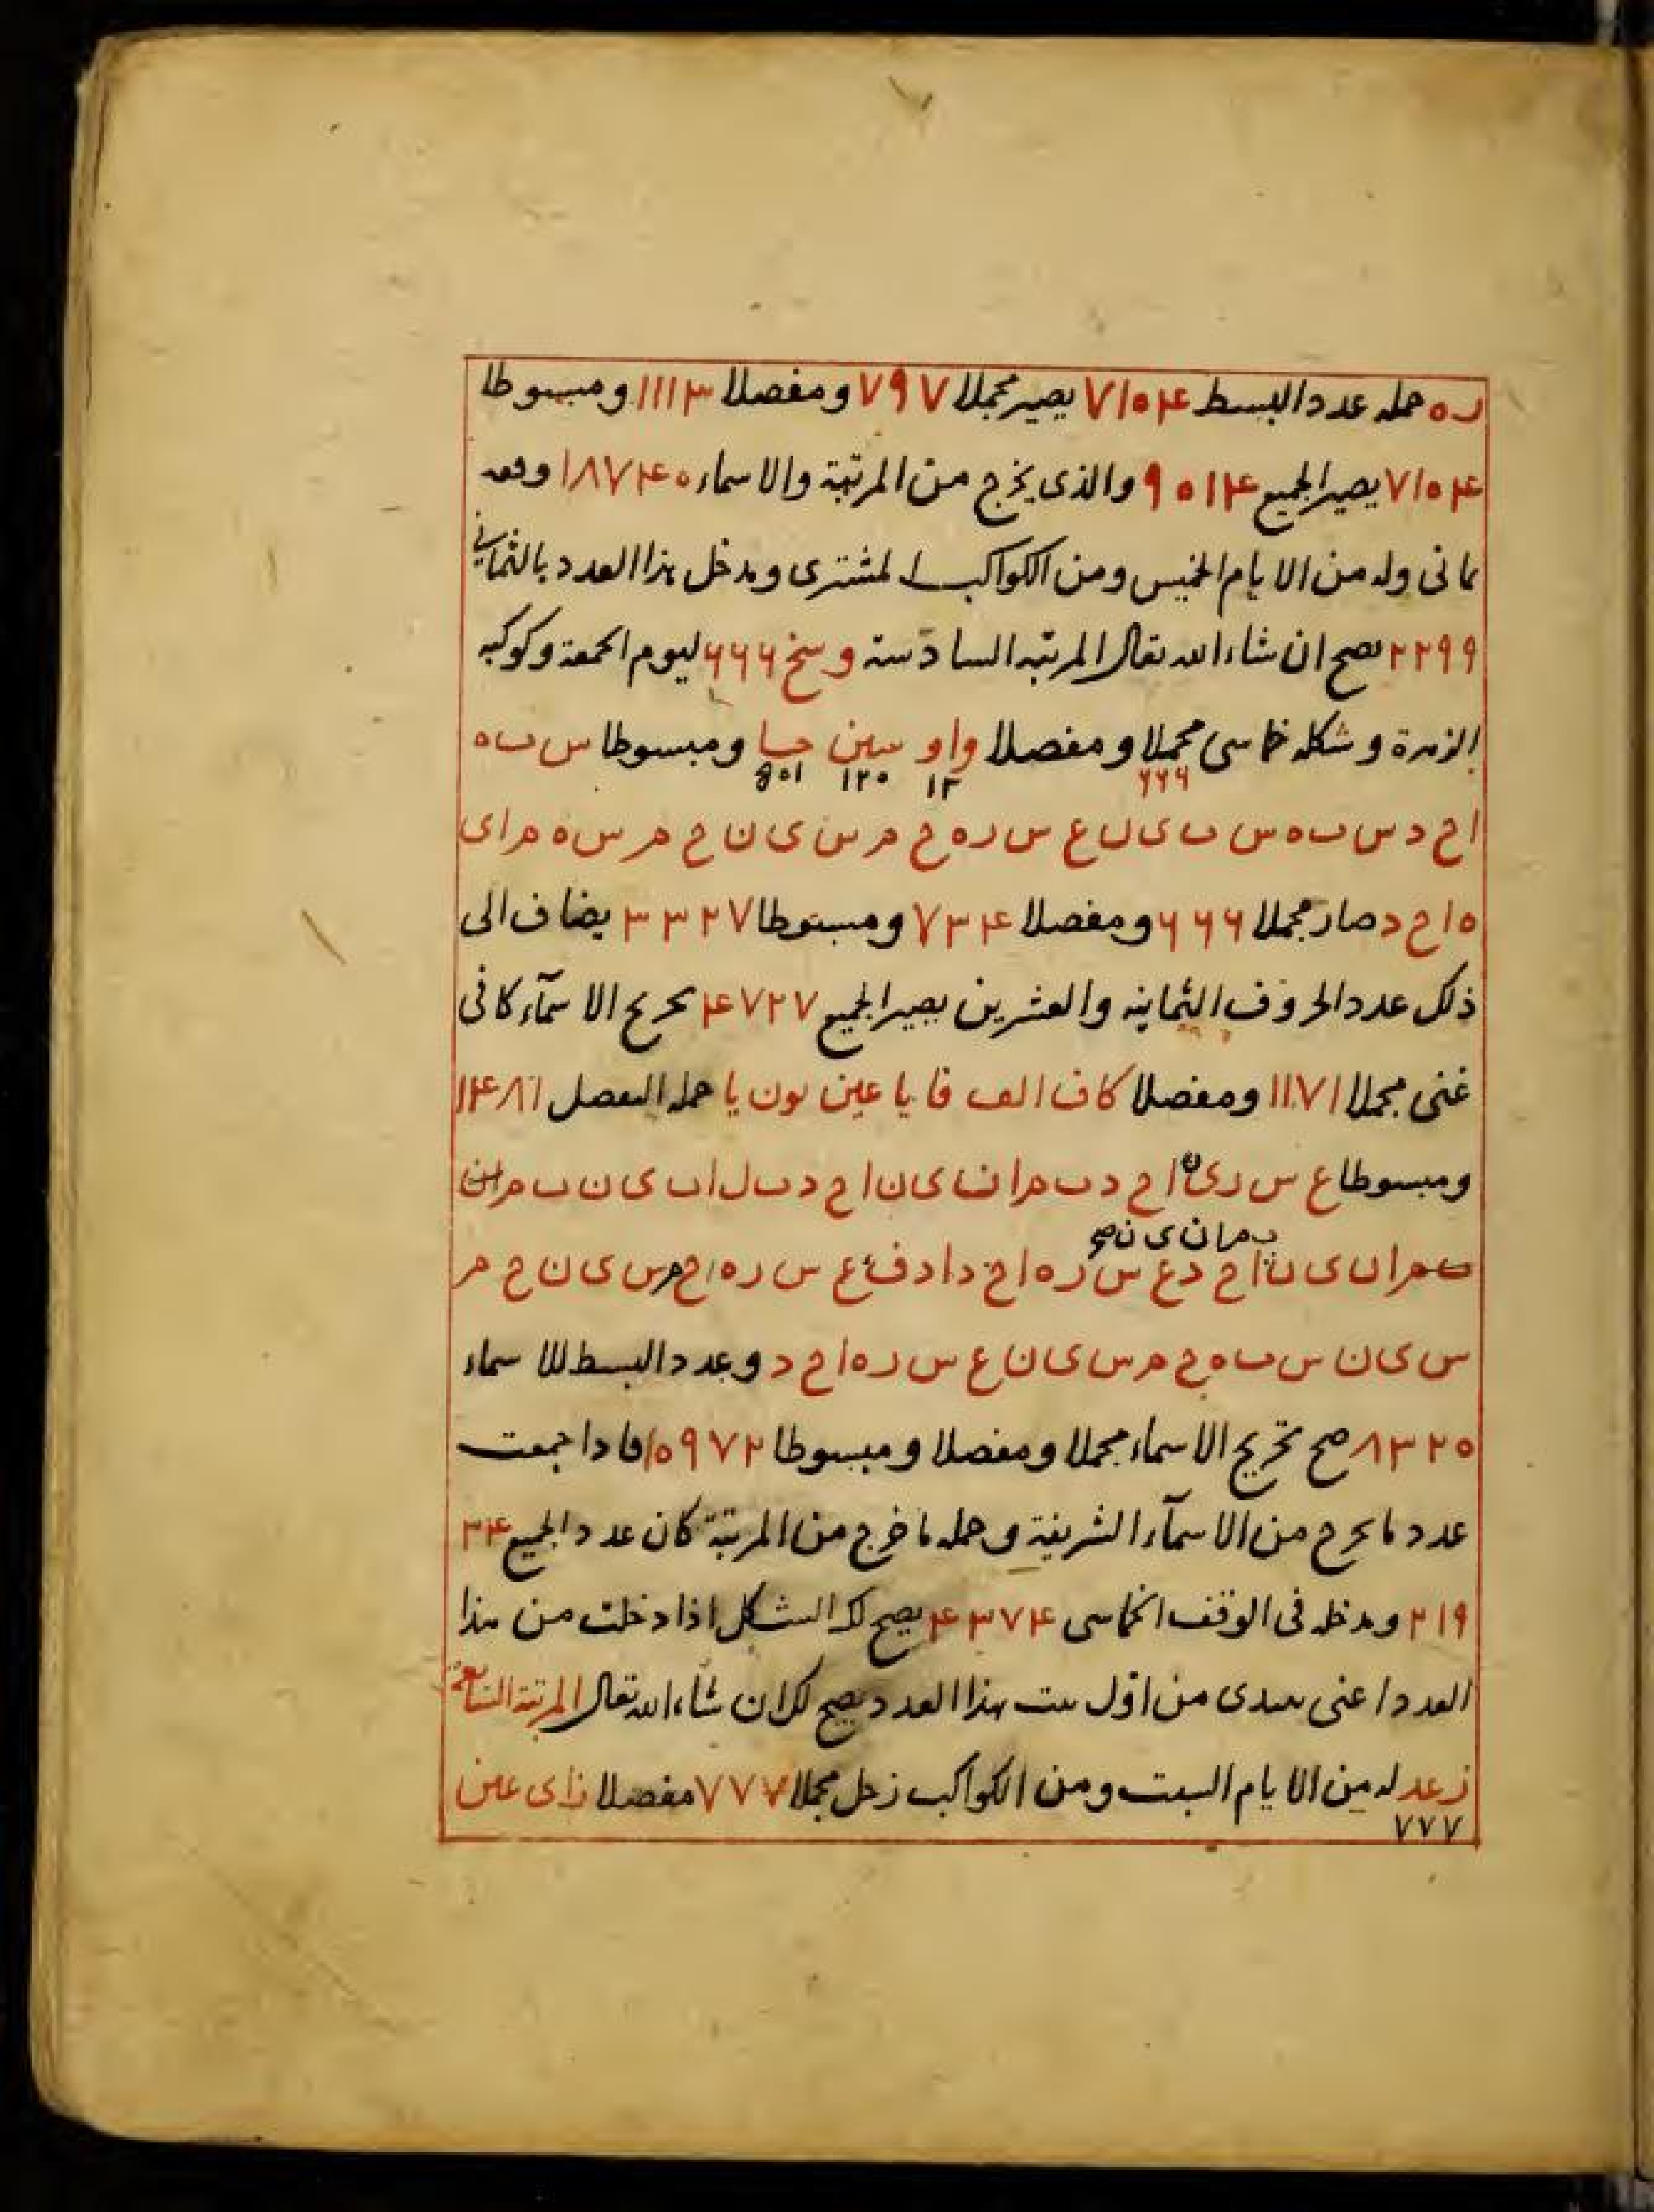 ره جمله عدد البسط ٧١٥۴ يصير مجملا ٧٩٧ ومفصلا ١١١٣ ومبسوطا
٧١٥۴ يصير الجميع ٩٥١۴ والذى يخرج من المرتبة والاسماء ١٨٧۴٥ وفقه
ثمانى وله من الايام الخميس ومن الكواكب المشترى ومدخل هذا العدد بالثمانى
٢٢٩٩ يصح ان شاء الله تعالى المرتبه السادسة وسخ ۶۶۶ ليوم الجمعة وكوكبه
الزهرة وشكله خماسى مجملا ومفصلا واو سين خا ومبسوطا س ت ه
۶۶۶ ١٣ ١٢٠ ۶٠١
ا ح د س ت ه س ت ى ن ع س ر ه خ م س ى ن خ م س ه م ا ى
ه ا ح د صار مجملا ۶۶۶ ومفصلا ٧٣۴ ومبسوطا ٣٣٢٧ يضاف الى
ذلك عدد الحروف الثمانيه والعشرين يصير الجميع ۴٧٢٧ تخريج الاسمآء كافى
غنى مجملا ١١٧١ ومفصلا كاف الف فا يا عين نون يا جمله المفصل ١۴٨١
ومبسوطا ع س ر ى ن ا ح د ث م ا ن ى ن ا ح د ث ل ا ث ى ن ث م ا ن
ث م ا ن ى ن صح
ث م ا ن ى ن ا ح د ع س ر ه ا ح د ا د ف ع س ر ه ا ح م س ى ن خ م
س ى ن س ت ه خ م س ى ن ع س ر ه ا ح د وعدد البسط للاسماء
٨٣٢٥ صح تخريج الاسماء مجملا ومفصلا ومبسوطا ١٥٩٧٢ فاذا جمعت
عدد ما يخرج من الاسمآء الشريفة وجمله ما خرج من المرتبة كان عدد الجميع ٢۴
٢١٩ ومدخله فى الوقف الخماسى ۴٣٧۴ يصح لك الشكل اذا دخلت من هذا
العدد اعنى تبتدى من اوّل بيت بهذا العدد يصح لك ان شاء الله تعالى المرتبة السابعة
زعد له من الايام السبت ومن الكواكب زحل مجملا ٧٧٧ مفصلا زاى عين
٧٧٧